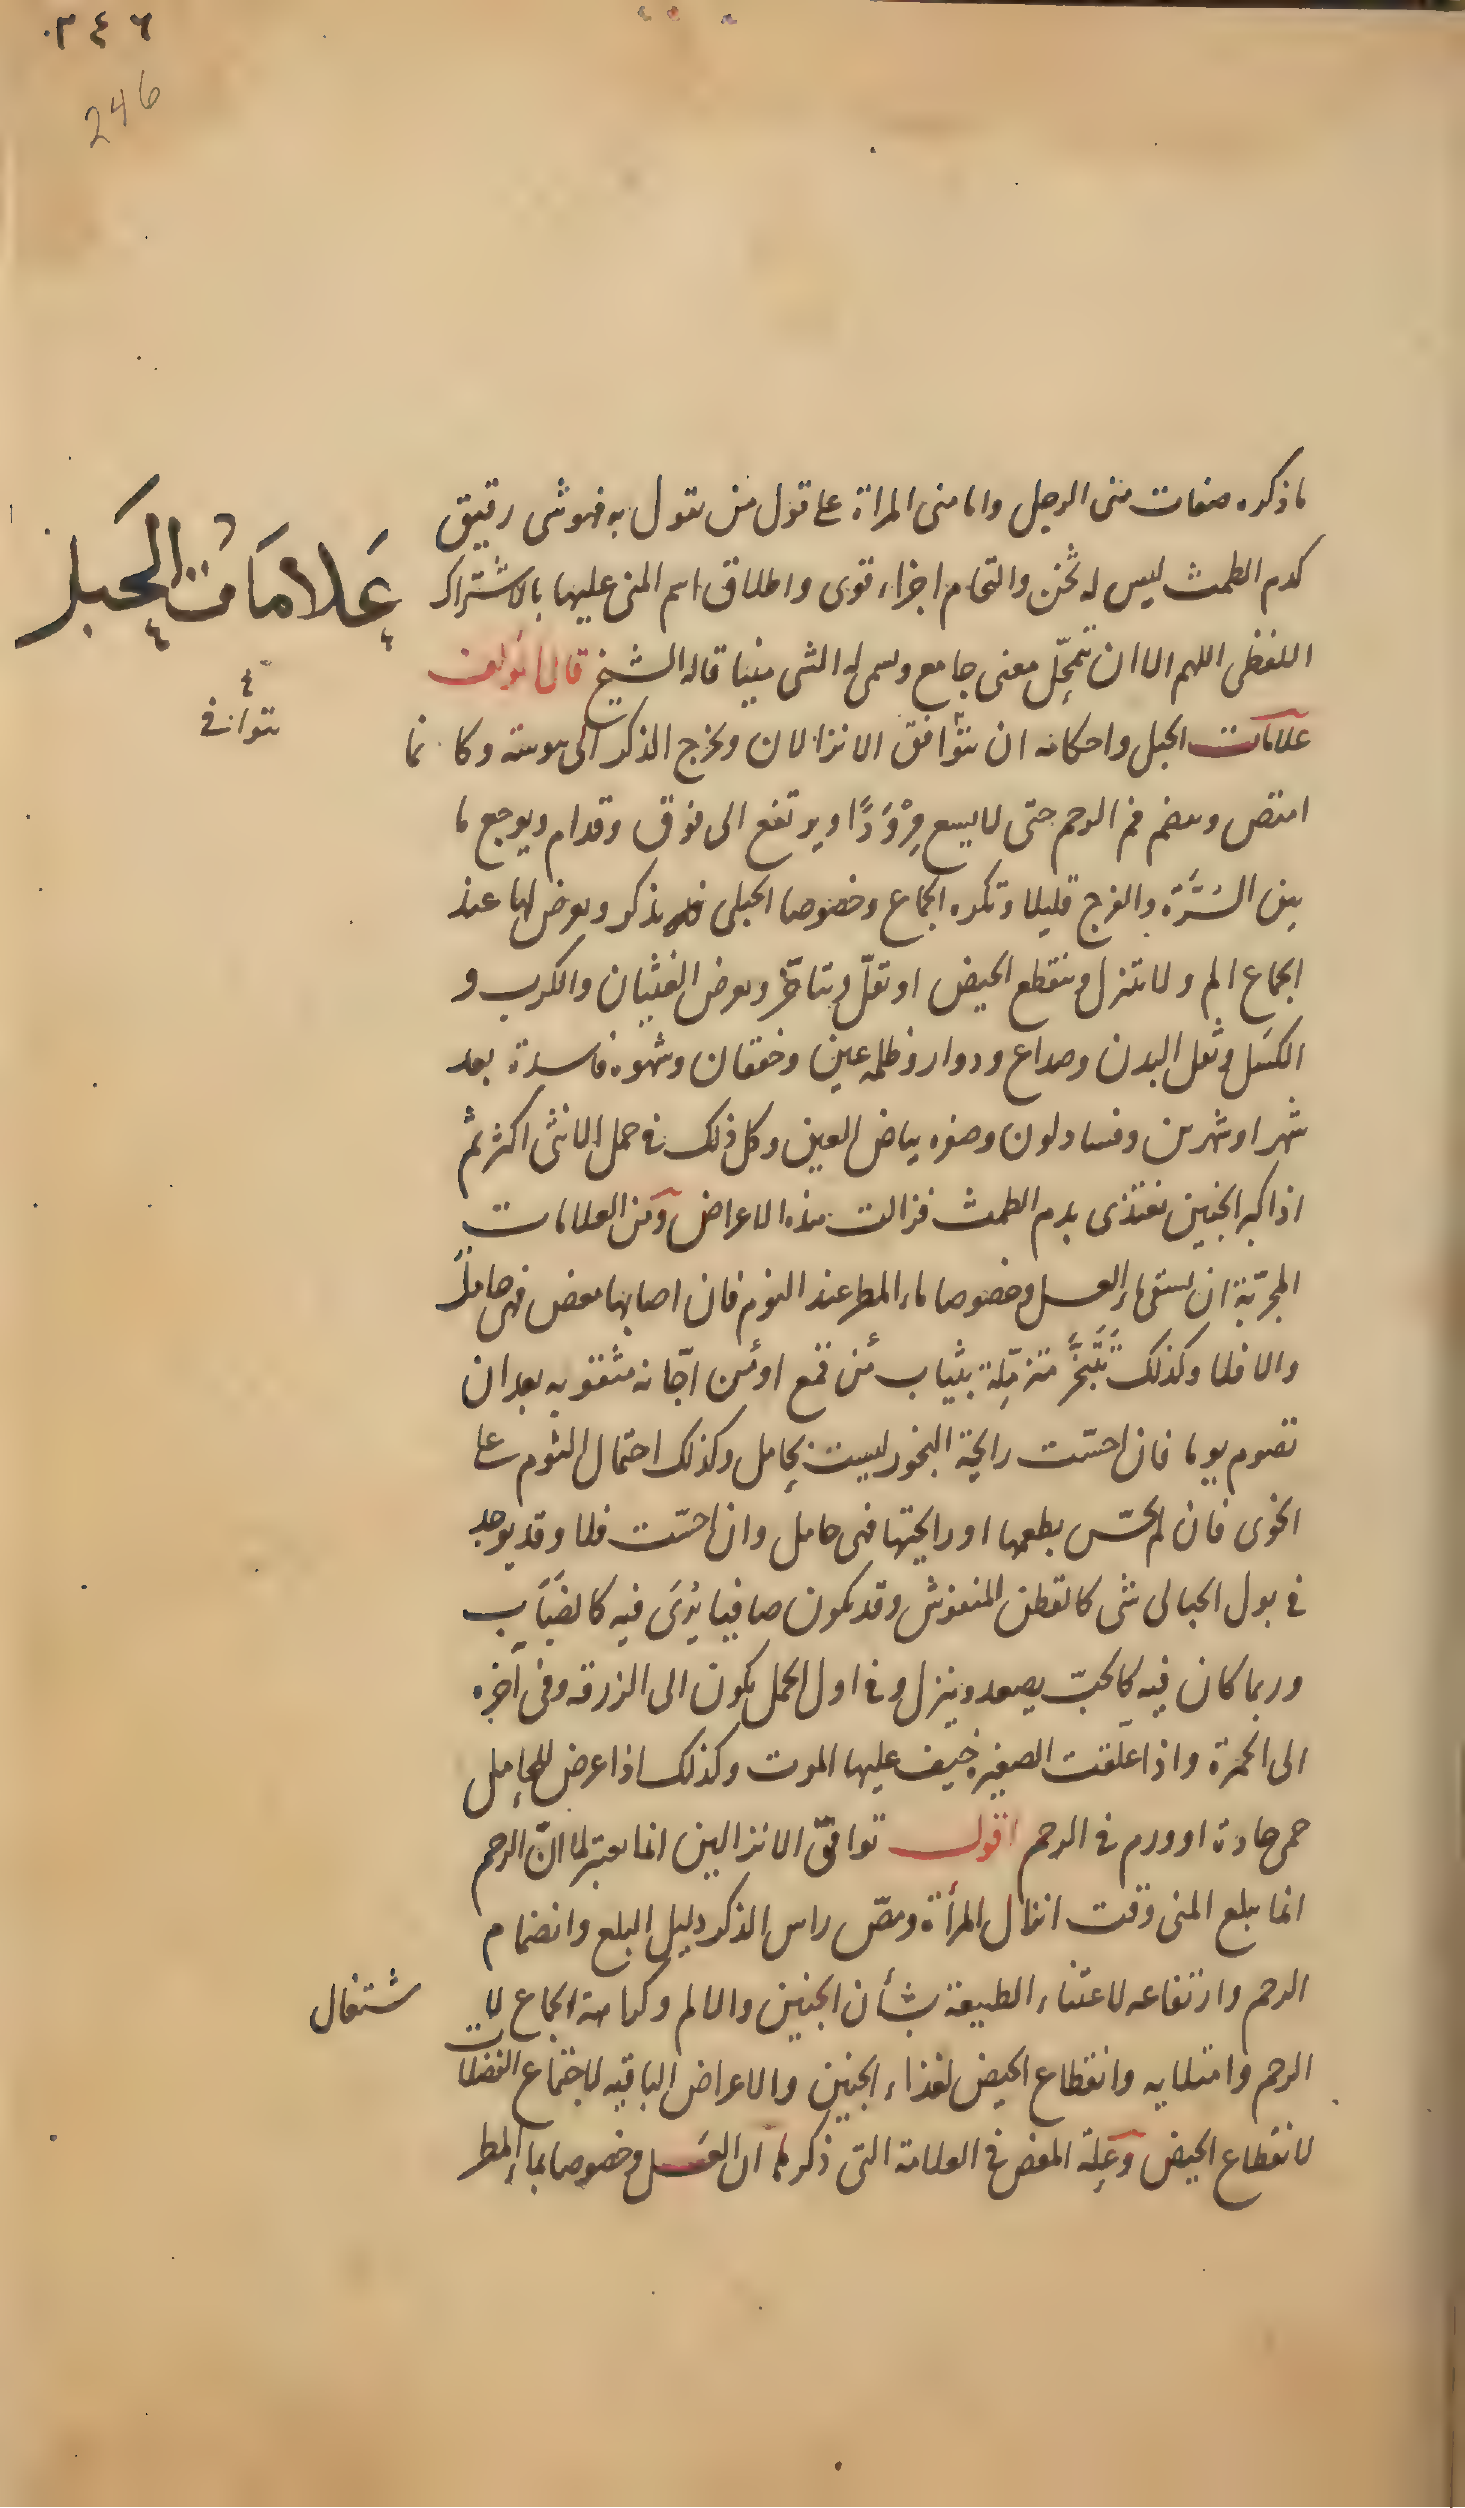 ٢٤٦
246
ما ذكره صفات منى الرجل واما منى المراة على قول من يقول به فهو شى رقيق
كدم الطمث ليس له ثخن والتحام اجزاء قوى واطلاق اسم المنى عليها بالاشتراك
علامات الحبل
اللفظى اللهم الا ان يتمحّل معنى جامع ويسمى له الشى منيا قاله الشيخ قال المؤلف
توافى
علامات الحبل واحكامه ان يتوافق الانزالان ويخرج الذكر الى يبوسة وكانما
امتص وينضم فم الرحم حتى لا يسع مِرْوَدًا ويرتفع الى فوق وقدام ويوجع ما
بين السُّرَّة والفرج قليلا وتكره الجماع وخصوصا الحبلى بذكر ويعرض لها عند
الجماع الم ولا تنزل وينقطع الحيض او تقلّ ويتاخّر ويعرض الغثيان والكرب و
الكسَل وثقل البدن وصداع ودوار وظلمه عين وخفقان وشهوه فاسدة بعد
شهر او شهرين وفساد لون وصفره بياض العين وكل ذلك فى حمل الانثى اكثر ثم
اذا كبر الجنين يغتذى بدم الطمث فزالت هذه الاعراض ومن العلامات
المجرّبة ان تسقى ماء العسل وخصوصا بماء المطر عند النوم فان اصابها مغص فهى حامل
والا فلا وكذلك تَتَبخَّر متزمّلة بثياب من قمع او من اجّانه مثقوبه بعد ان
تصوم يوما فان احسّت رايحة البخور ليست بحامل وكذلك احتمال الثوم على
الخوى فان لم تحسّ بطعمها او رايحتها فهى حامل وان احسّت فلا وقد يوجد
فى بول الحبالى شى كالقطن المنفوش وقد يكون صافيا يُرَى فيه كالضَبَاب
وربما كان فيه كالحبّ يصعد وينزل وفى اول الحمل يكون الى الزرقه وفى آخره
الى الحمرة واذا علقت الصغيرة خيف عليها الموت وكذلك اذا عرض للحامل
حمى حادة او ورم فى الرحم اقول توافق الانزالين انما يعتبر لما انّ الرحم
انما يبلع المنى وقت انزال المرأة ومصّ راس الذكر دليل البلع وانضمام
الرحم وارتفاعه لاعتناء الطبيعة بشأن الجنين والالم وكراهة الجماع لاشتغال
الرحم وامتلايه وانقطاع الحيض لغذاء الجنين والاعراض الباقيه لاجتماع الفضلات
لانقطاع الحيض وعلة المغص فى العلامة التى ذكرها ان العسل وخصوصا بماء المطر